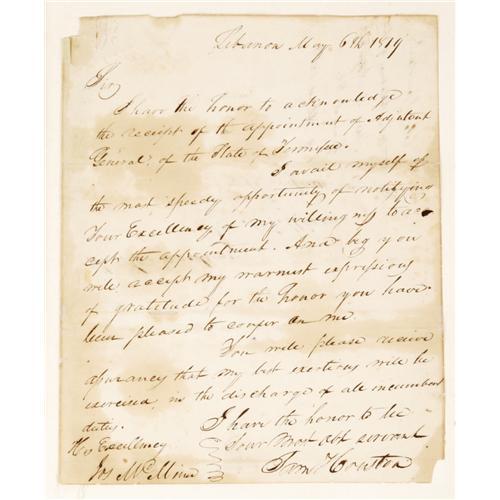 Lebanon May 6th 1819
Sir,
I have the honor to acknowledge
the receipt of the appointment of Adjutant
General, of the State of Tennessee.
I avail myself of
the most speedy opportunity of notifying
Your Excellency of my willingness to ac-
cept the appointment. And beg you
will accept my warmest expressions
of gratitude for the honor you have
been pleased to confer on me.
You will please receive
assurances that my best exertions will be
exercised, in the discharge of all incumbent
duties.
I have the honor to be
Your Most obt servant
Sam Houston
His Excellency
Jos McMinn